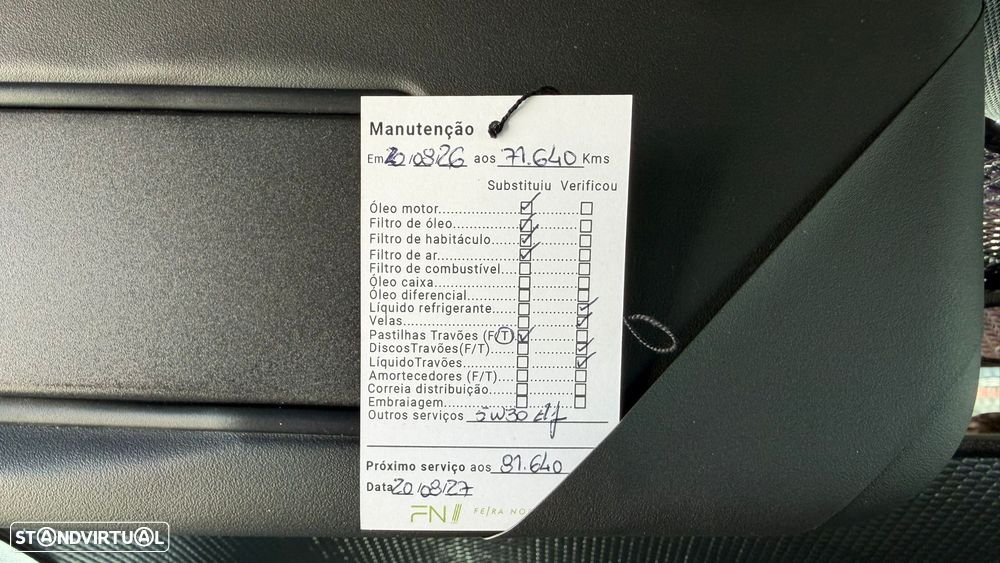 Manutenção
Em 20/08/26 aos 71.640 Kms
Substituiu Verificou
Óleo motor
Filtro de óleo
Filtro de habitáculo
Filtro de ar
Filtro de combustível
Óleo caixa
Óleo diferencial
Líquido refrigerante
Velas
Pastilhas Travões (F/T)
DiscosTravões(F/T)
LíquidoTravões
Amortecedores (F/T)
Correia distribuição
Embraiagem
Outros serviços 5W30 elf
Próximo serviço aos 81.640
Data 20/08/27
FN FE/RA NO
STANDVIRTUAL